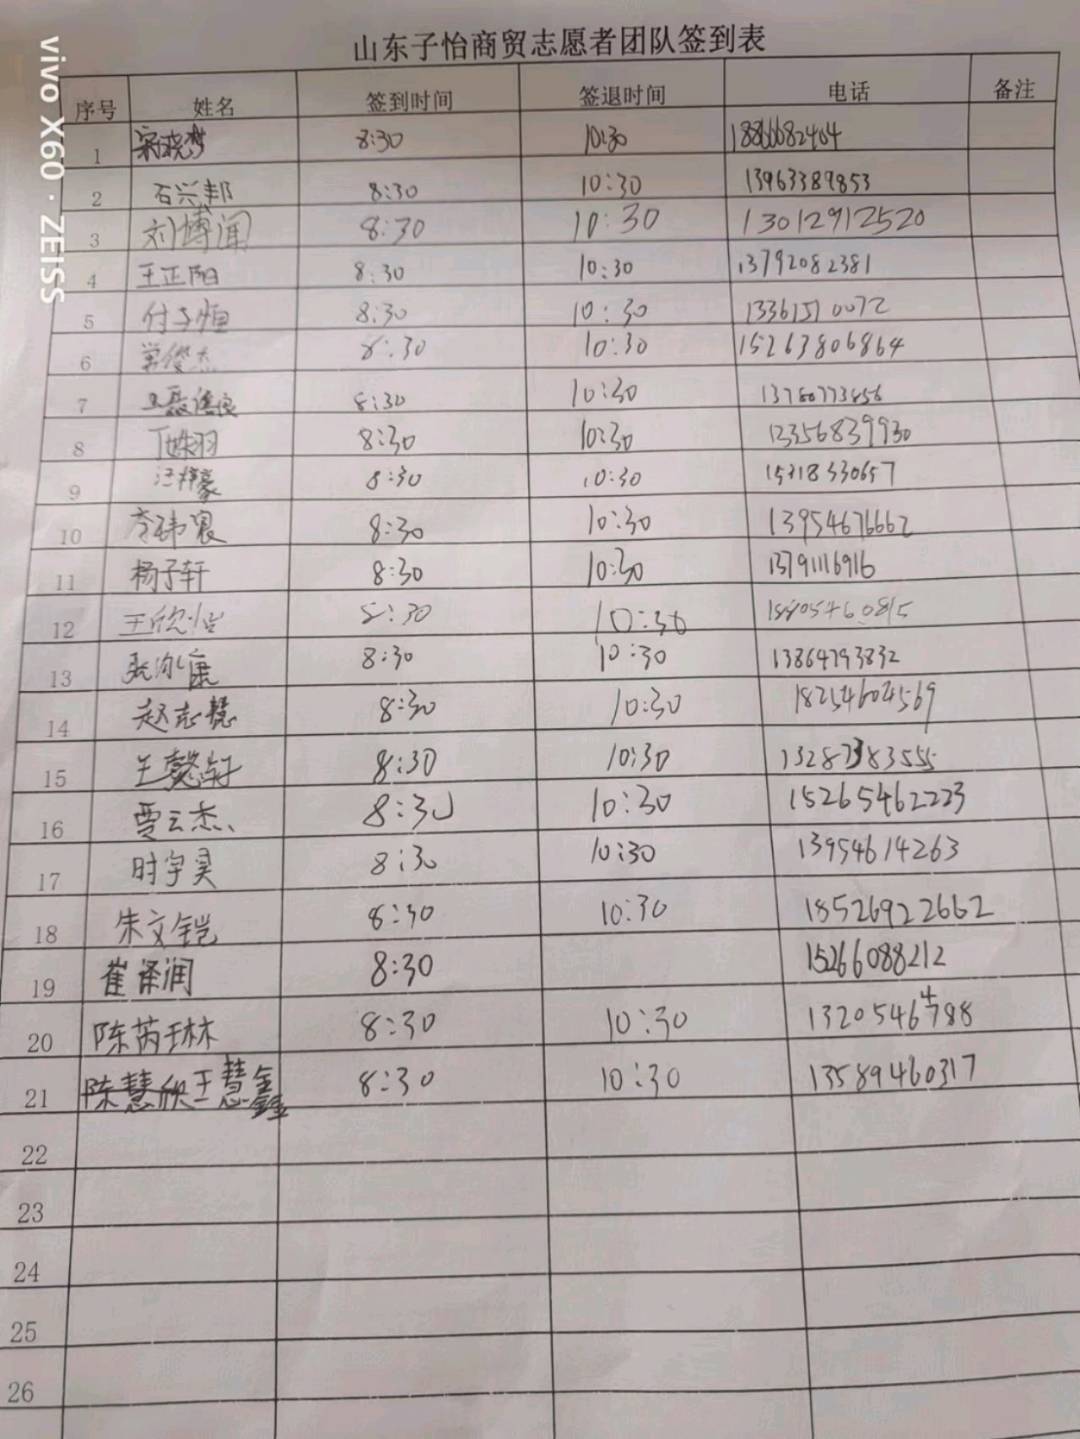 vivo X60 · ZEISS
山东子怡商贸志愿者团队签到表
序号 姓名 签到时间 签退时间 电话 备注
1 宋晓梦 8:30 10:30 18866682404
2 石兴邦 8:30 10:30 13963389853
3 刘博闻 8:30 10:30 13012912520
4 王正阳 8:30 10:30 13792082381
5 付子恒 8:30 10:30 13361510072
6 8:30 10:30 15263806864
7 8:30 10:30
8 丁姝羽 8:30 10:30
9 8:30 10:30
10 8:30 10:30 13954676662
11 杨子轩 8:30 10:30 13791116916
12 王欣怡 8:30 10:30 18805460815
13 8:30 10:30 13864793832
14 赵志慧 8:30 10:30 18254604569
15 王懿轩 8:30 10:30 13287383555
16 贾云杰 8:30 10:30 15265462223
17 时宇昊 8:30 10:30 13954614263
18 朱文铠 8:30 10:30 18526922662
19 崔译润 8:30 15266088212
20 陈芮琳 8:30 10:30
21 陈慧欣王慧鑫 8:30 10:30 13589460317
22
23
24
25
26